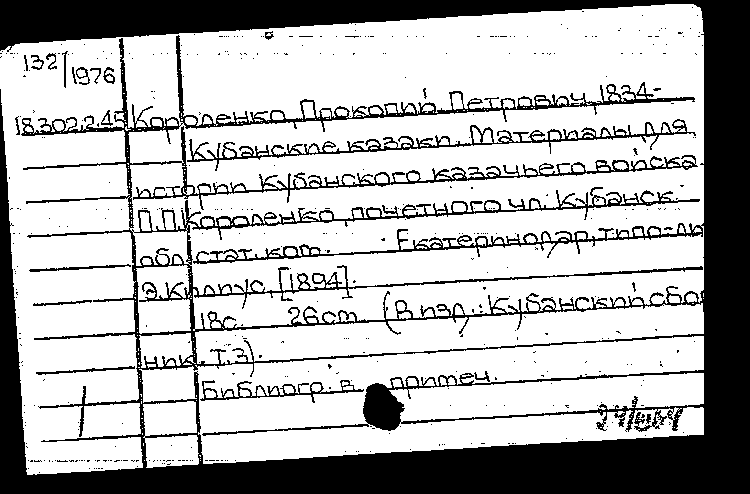 132/1976
18.302.2.45 Короленко, Прокопий Петрович, 1834-
Кубанские казаки. Материалы для
истории Кубанского казачьего войска
П.П.Короленко, почетного чл. Кубанск.
обл. стат. ком. Екатеринодар, типо-ли
Э.Килпус, [1894].
18с. 26cm. (В изд.: Кубанский сбор
ник. Т.3).
Библиогр. в примеч.